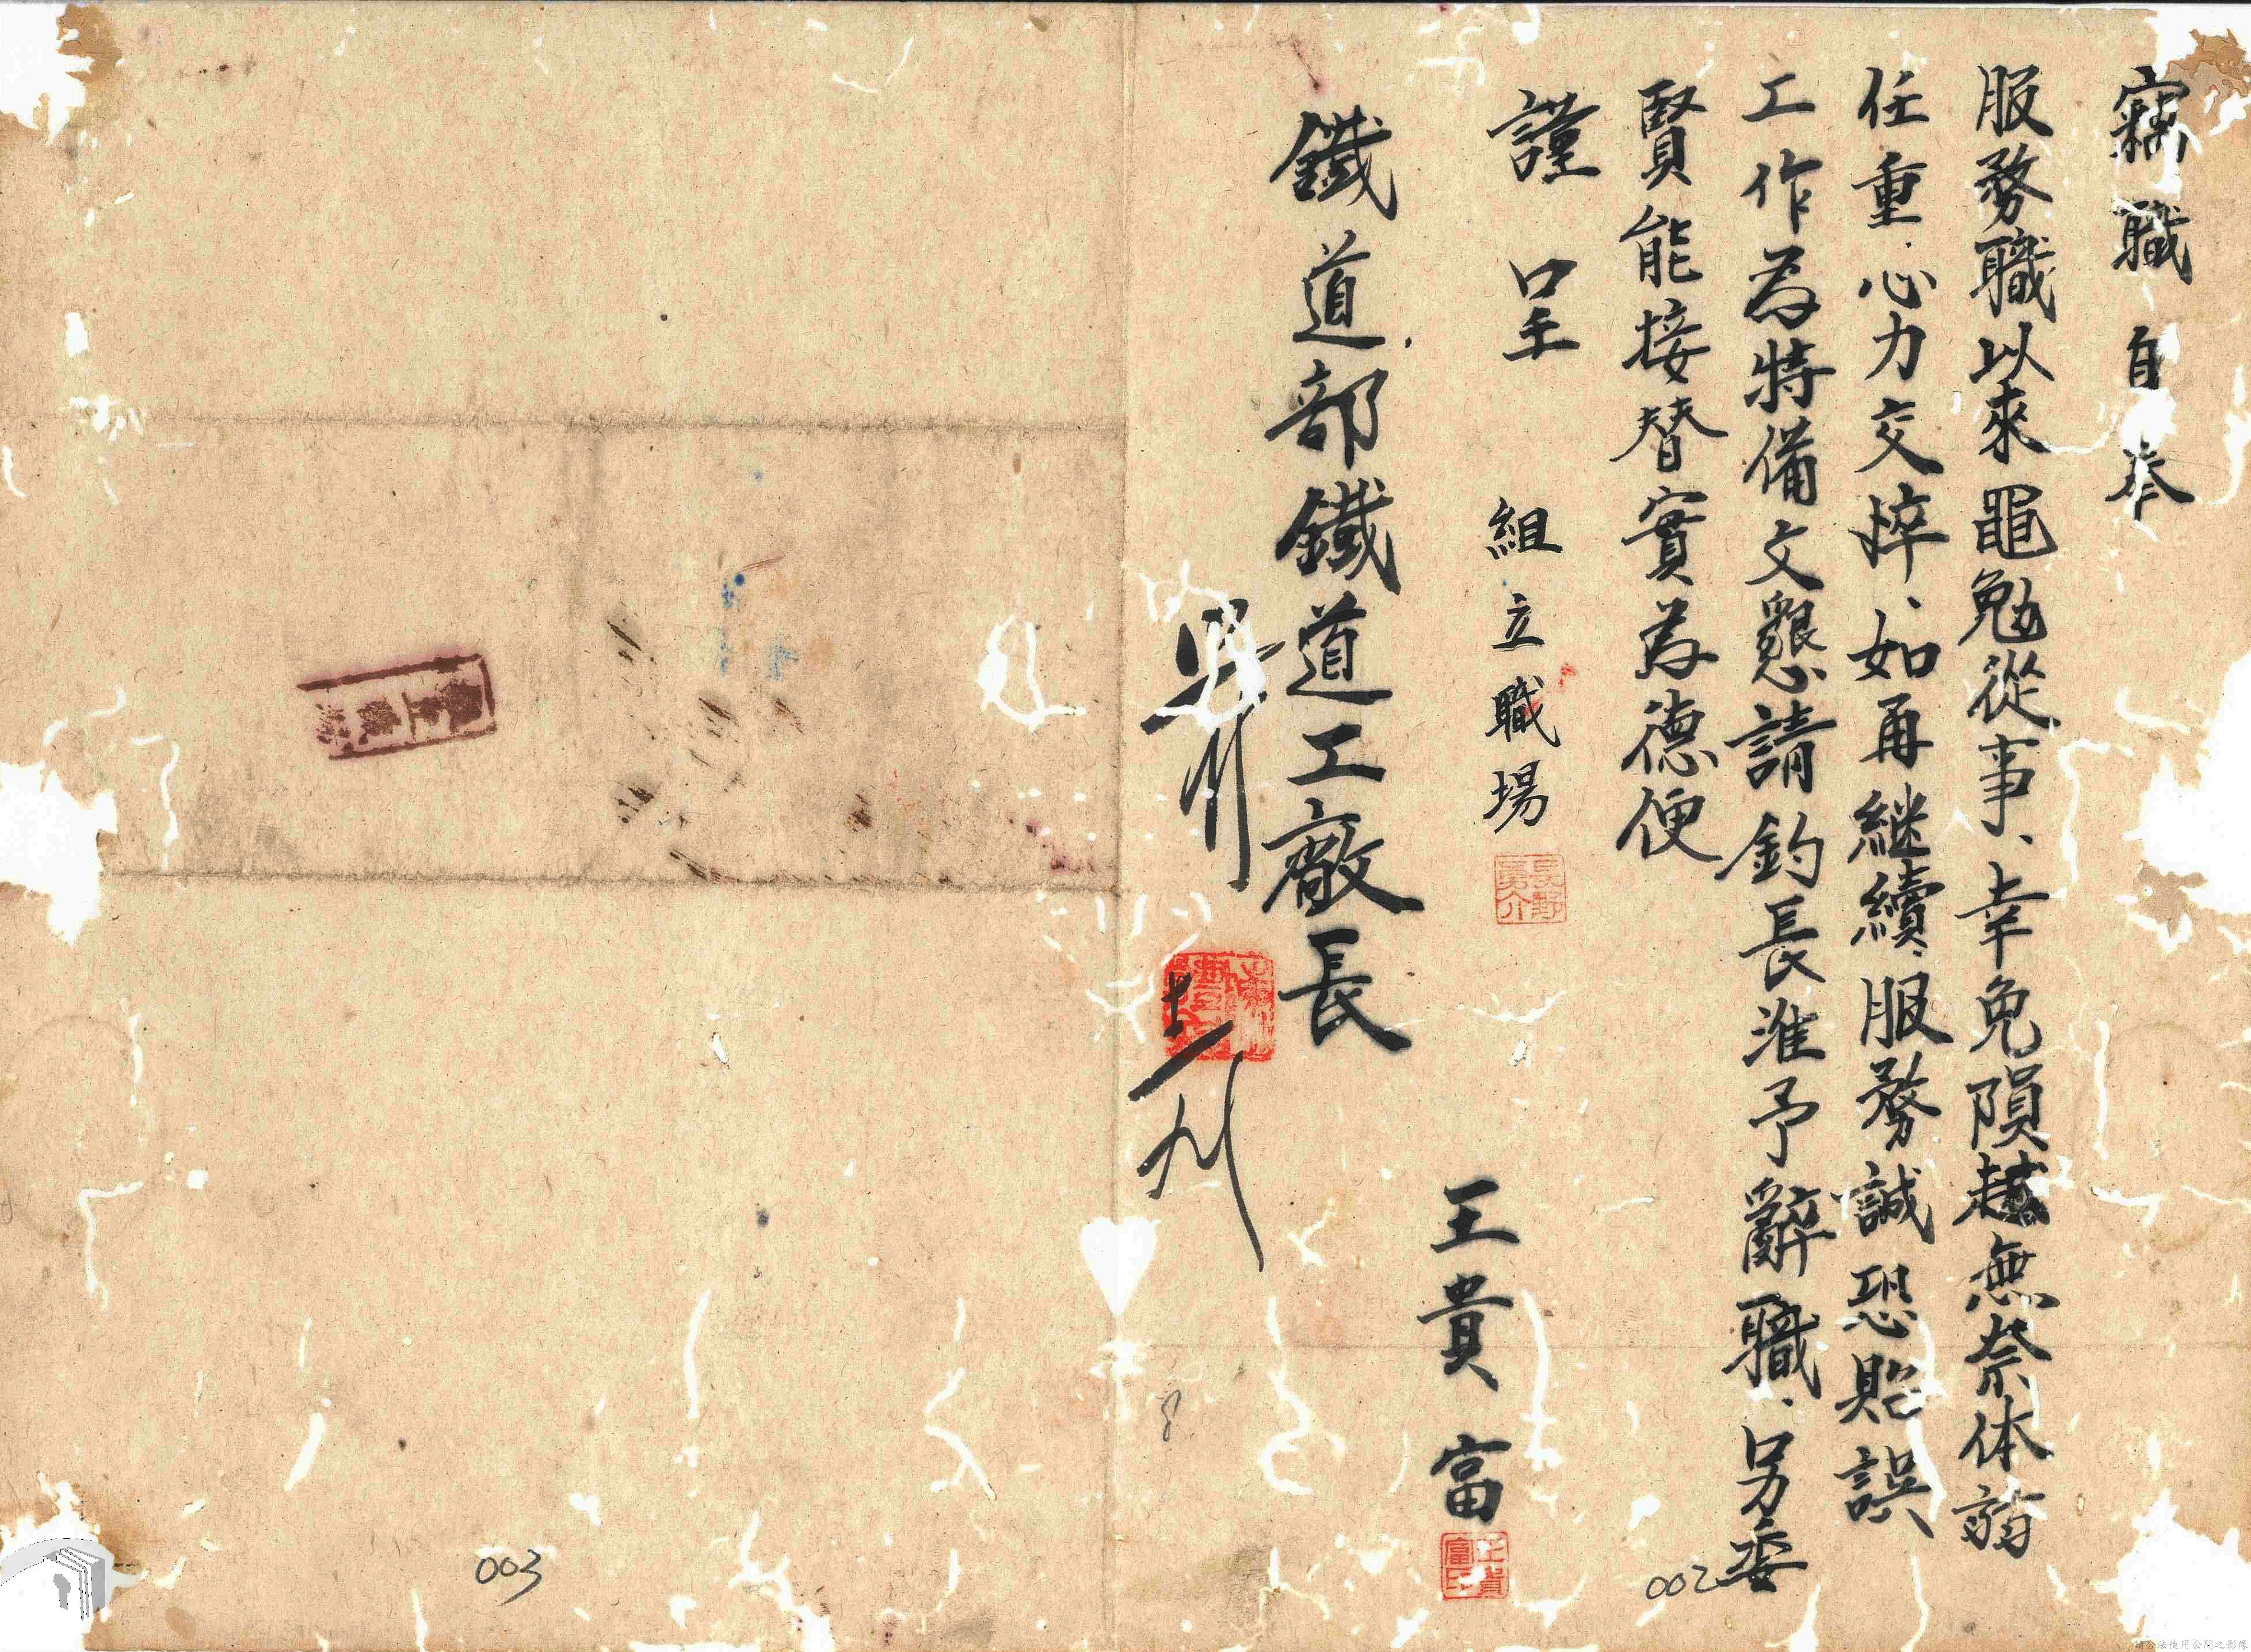 竊職自奉
服務職以來黽勉從事、幸免隕越無奈体弱
任重心力交悴、如再継續服務誠恐貽誤
工作為特備文懇請鈞長准予辭職、另委
賢能接替實為德便
謹呈
組立職場
長野勇介
王貴富
王貴富印
鐵道部鐵道工廠長
002
003